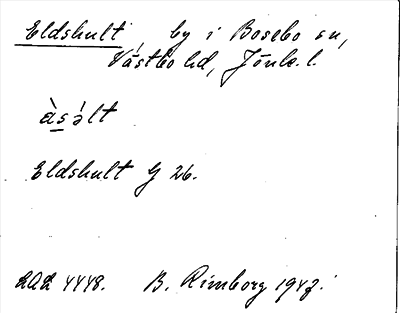 Eldshult, by i Bosebo sn,
Västbo hd, Jönk. l.
Eldshult G 26.
4448. B. Rimborg 1947.